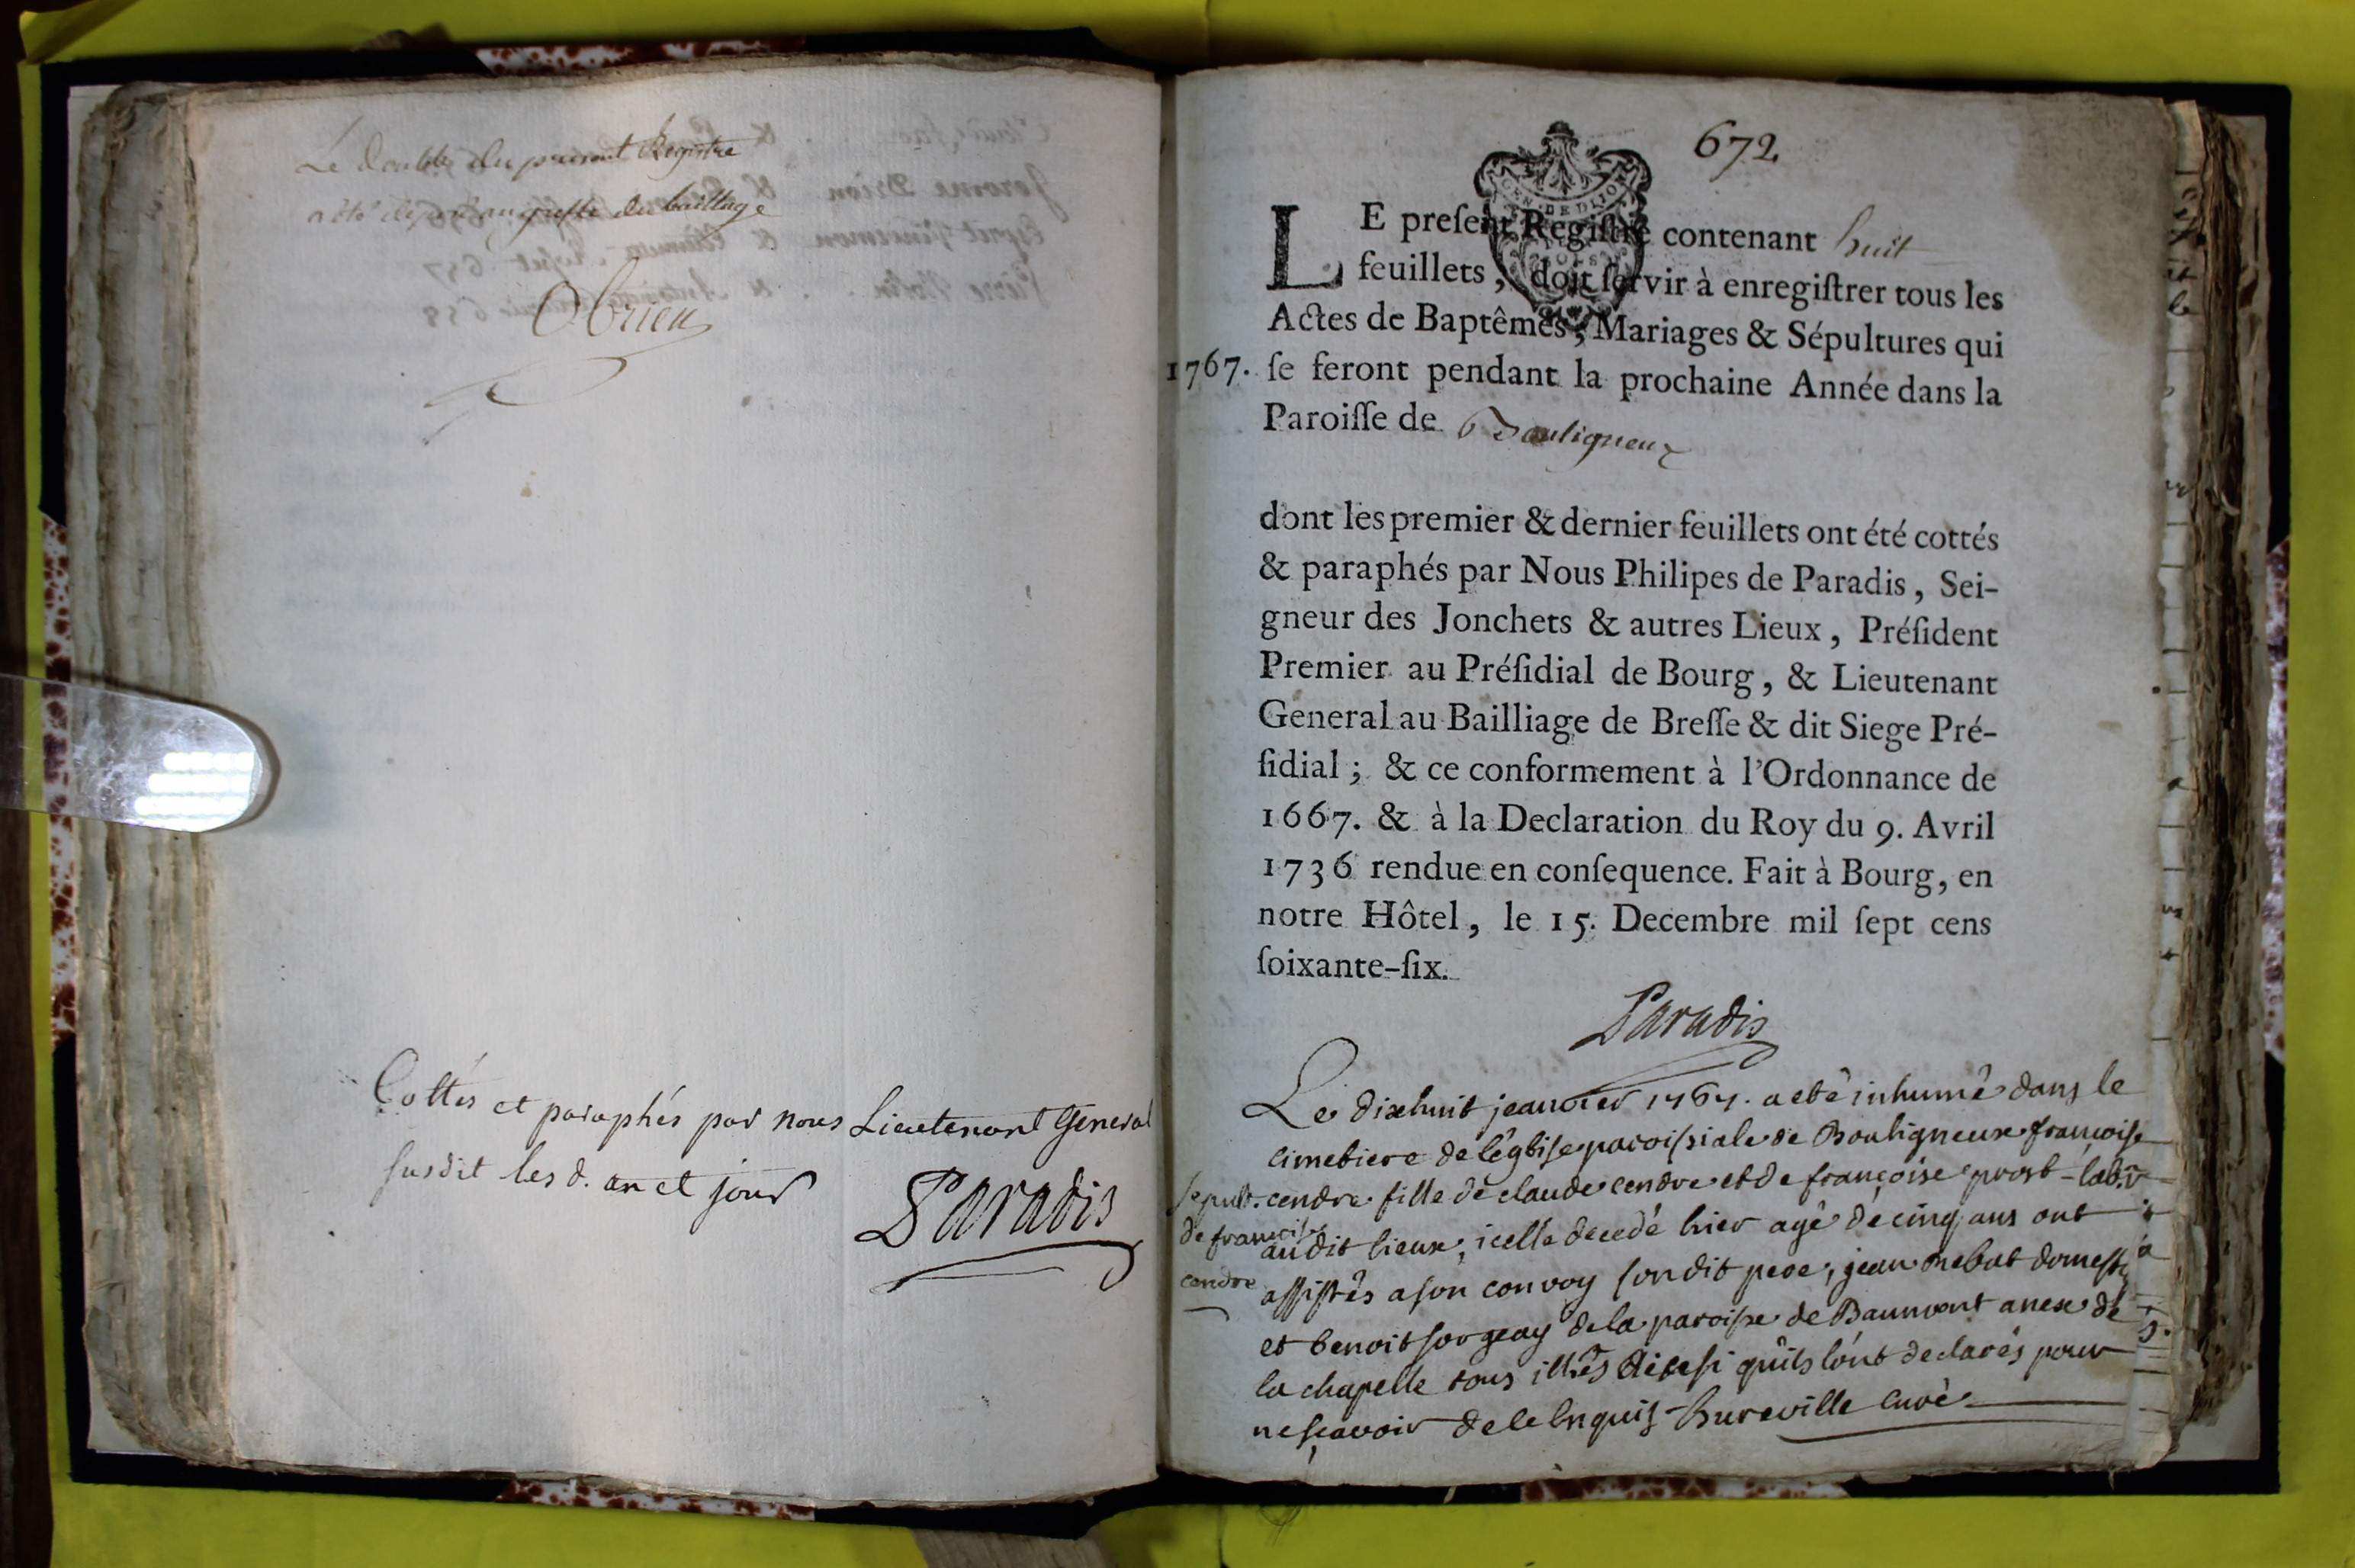 Le double du present Registre
a eté deposé au greffe du bailliage
Obrien
Cottés et paraphés par nous Lieutenant General
susdit lesd. an et jour
Paradis
672.
LE preſent Regiſtre contenant huit
feuillets, doit ſervir à enregiſtrer tous les
Actes de Baptêmes, Mariages & Sépultures qui
1767. ſe feront pendant la prochaine Année dans la
Paroiſſe de Bouligneux
dont les premier & dernier feuillets ont été cottés
& paraphés par Nous Philipes de Paradis, Sei-
gneur des Jonchets & autres Lieux, Préſident
Premier au Préſidial de Bourg, & Lieutenant
General au Bailliage de Breſſe & dit Siege Pré-
ſidial; & ce conformement à l'Ordonnance de
1667. & à la Declaration du Roy du 9. Avril
1736 rendue en conſequence. Fait à Bourg, en
notre Hôtel, le 15. Decembre mil ſept cens
ſoixante-ſix.
Paradis
Le dixhuit jeanvier 1767. a eté inhumé dans le
cimetiere de l'église paroissiale de Bouligneux françoise
cendre fille de claude cendre et de françoise prost - labr
audit lieux, icelle decedé hier agé de cinq ans ont
assistés a son convoy son dit pere, jean nebut domesti
et benoit sorgeay de la paroisse de Baumont anexe de
la chapelle tous illrés qu'ils l'ont declarés pour
ne sçavoir de ce enquis Hureville curé
sepult.
de françoise
cendre